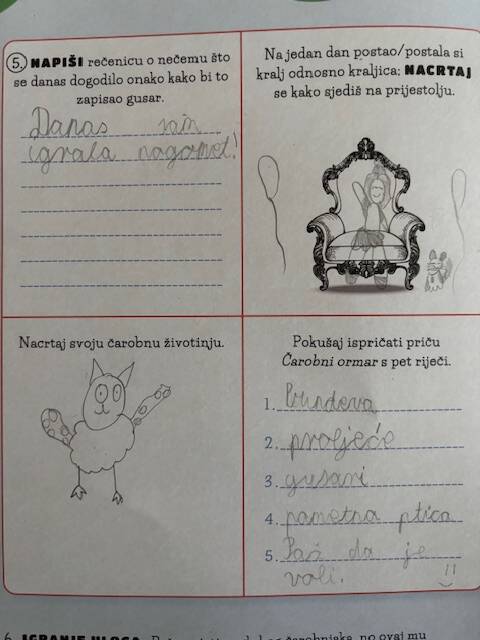 5. NAPIŠI rečenicu o nečemu što
se danas dogodilo onako kako bi to
zapisao gusar.
Danas sam
igrala nogomet!
Na jedan dan postao/postala si
kralj odnosno kraljica; NACRTAJ
se kako sjediš na prijestolju.
Nacrtaj svoju čarobnu životinju.
Pokušaj ispričati priču
Čarobni ormar s pet riječi.
1. Bundeva
2. proljeće
3. gusari
4. pametna ptica
5. Paž da je
voli.
6. IGRANJE ULOGA.
no ovaj mu